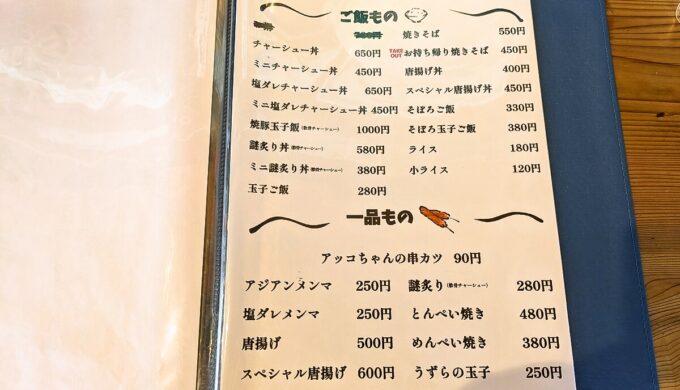 ご飯もの
焼きそば 550円
チャーシュー丼 650円 TAKE OUT お持ち帰り焼きそば 450円
ミニチャーシュー丼 450円 唐揚げ丼 400円
塩ダレチャーシュー丼 650円 スペシャル唐揚げ丼 450円
ミニ塩ダレチャーシュー丼 450円 そぼろご飯 330円
焼豚玉子飯 1000円 そぼろ玉子ご飯 380円
謎炙り丼 580円 ライス 180円
ミニ謎炙り丼 380円 小ライス 120円
玉子ご飯 280円
一品もの
アッコちゃんの串カツ 90円
アジアンメンマ 250円 謎炙り 280円
塩ダレメンマ 250円 とんぺい焼き 480円
唐揚げ 500円 めんぺい焼き 380円
スペシャル唐揚げ 600円 うずらの玉子 250円